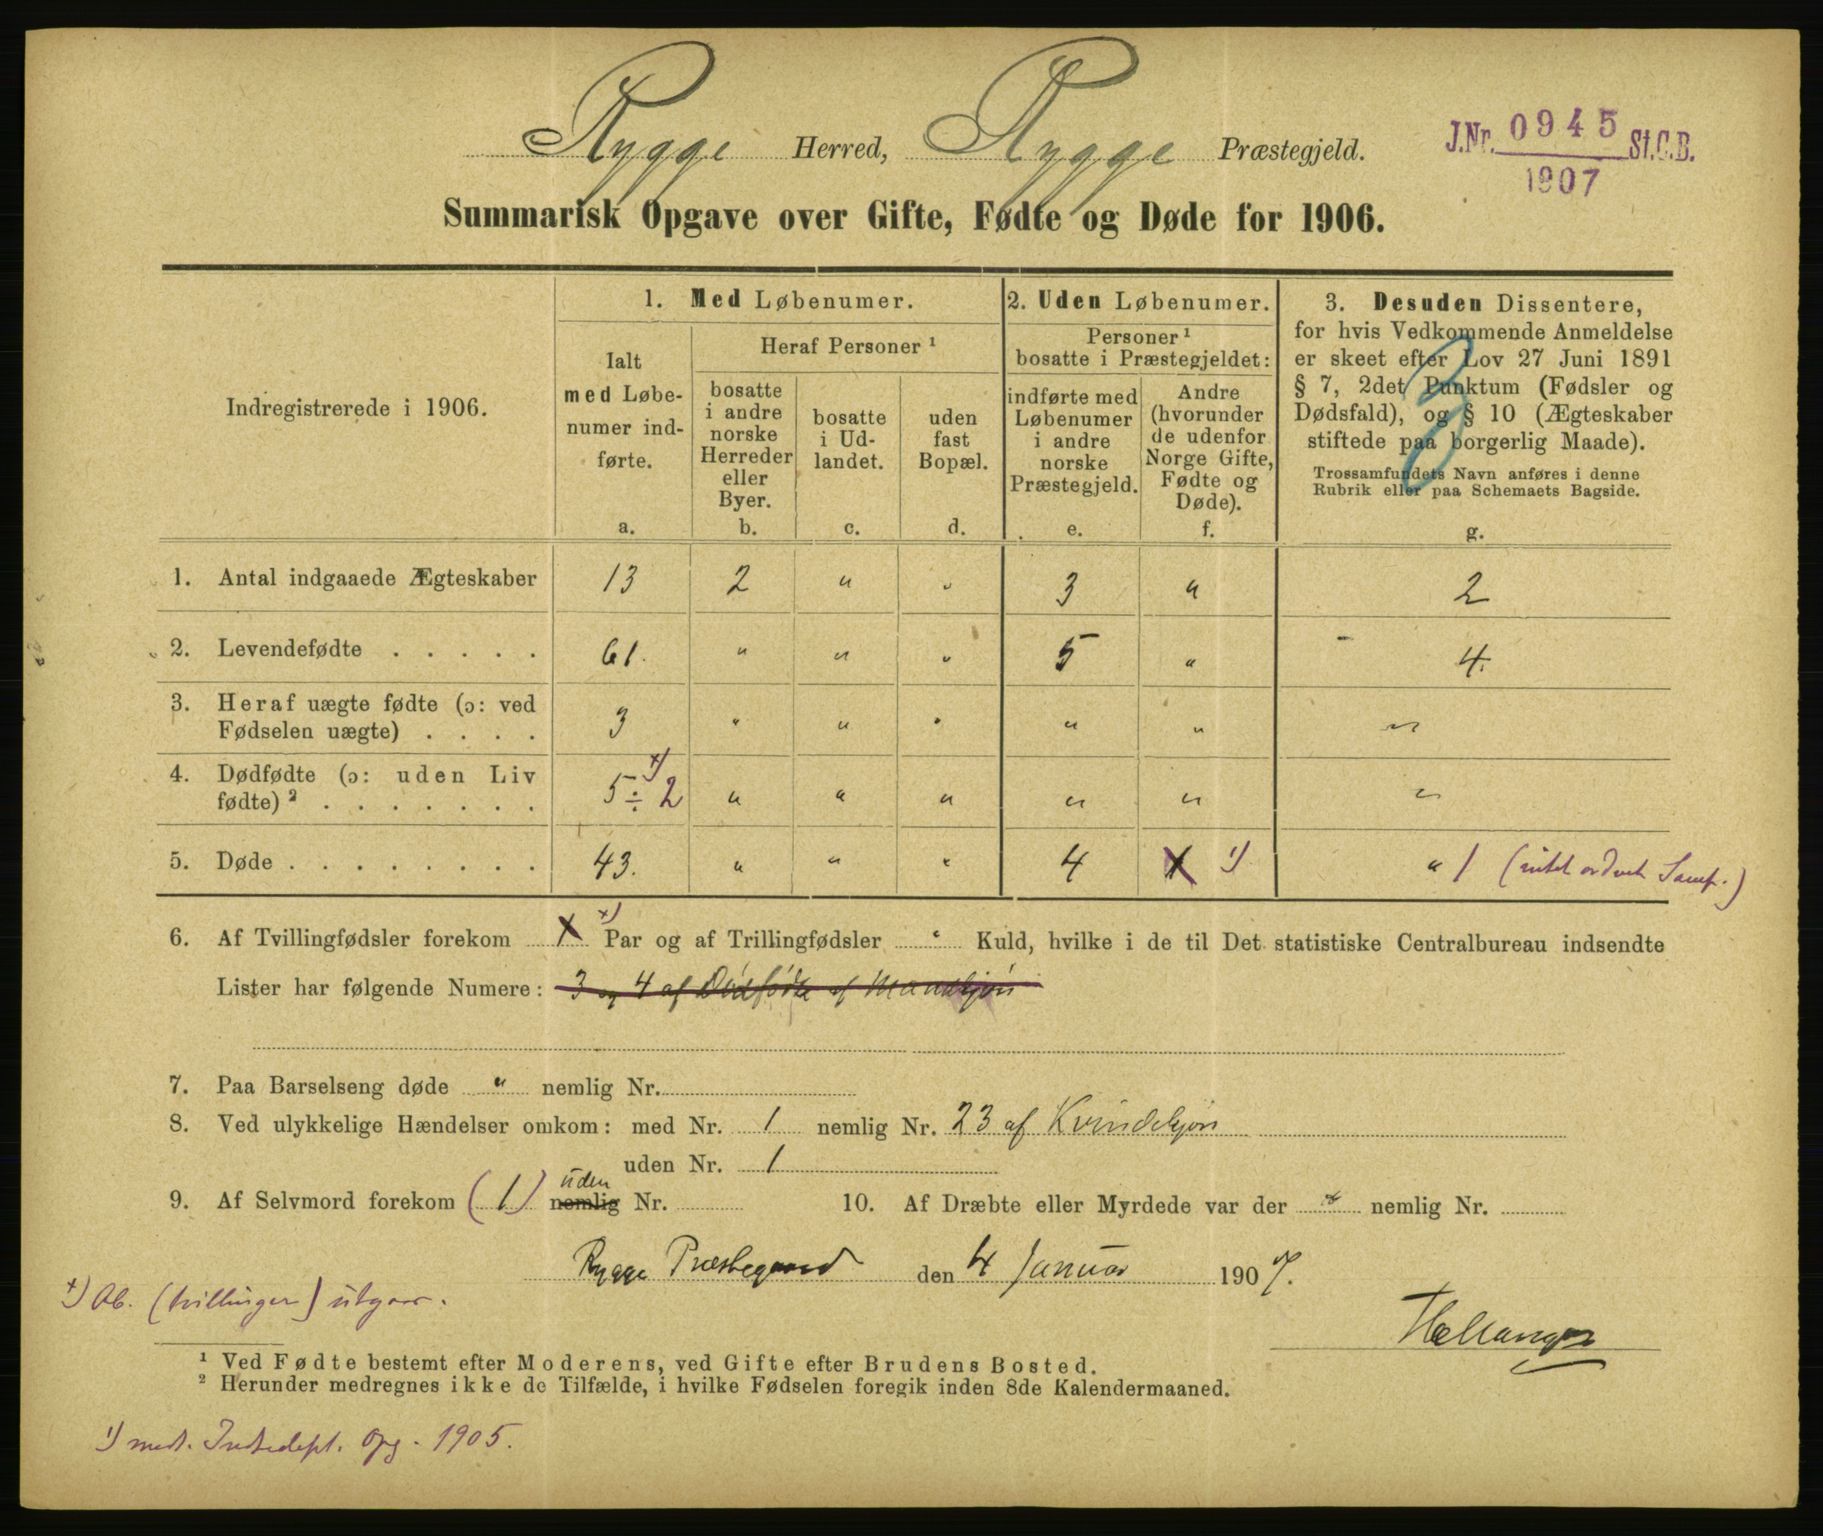 Rygge Herred, Rygge Præstegjeld.
J.Nr. 0945 St.C.B.
1907
Summarisk Opgave over Gifte, Fødte og Døde for 1906.
Indregistrerede i 1906.
1. Med Løbenumer.
Ialt med Løbe-numer ind-førte.
a.
Heraf Personer ¹
bosatte i andre norske Herreder eller Byer.
b.
bosatte i Ud-landet.
c.
uden fast Bopæl.
d.
2. Uden Løbenumer.
Personer ¹ bosatte i Præstegjeldet:
indførte med Løbenumer i andre norske Præstegjeld.
e.
Andre (hvorunder de udenfor Norge Gifte, Fødte og Døde).
f.
3. Desuden Dissentere,
for hvis Vedkommende Anmeldelse
er skeet efter Lov 27 Juni 1891
§ 7, 2det Punktum (Fødsler og
Dødsfald), og § 10 (Ægteskaber
stiftede paa borgerlig Maade).
Trossamfundets Navn anføres i denne
Rubrik eller paa Schemaets Bagside.
g.
1. Antal indgaaede Ægteskaber 13 2 " " 3 " 2
2. Levendefødte . . . . . 61. " " " 5 " 4.
3. Heraf uægte fødte (ɔ: ved
Fødselen uægte) . . . . 3 " " " " " "
4. Dødfødte (ɔ: uden Liv
fødte) ² . . . . . . . 5 ÷ 2 ˣ⁾ " " " " " "
5. Døde . . . . . . . . 43. " " " 4 1 ¹⁾ " 1
6. Af Tvillingfødsler forekom 1 ˣ⁾ Par og af Trillingfødsler " Kuld, hvilke i de til Det statistiske Centralbureau indsendte
Lister har følgende Numere: 3 og 4 af Dødfødte af Mandkjøn
7. Paa Barselseng døde " nemlig Nr.
8. Ved ulykkelige Hændelser omkom: med Nr. 1 nemlig Nr. 23 af Kvindekjøn
uden Nr. 1
9. Af Selvmord forekom (1) nemlig uden Nr. 10. Af Dræbte eller Myrdede var der " nemlig Nr.
Rygge Præstegaard den 4 Januar 1907.
x) Ab. (tvillinger) utgaar.
¹ Ved Fødte bestemt efter Moderens, ved Gifte efter Brudens Bosted.
² Herunder medregnes ikke de Tilfælde, i hvilke Fødselen foregik inden 8de Kalendermaaned.
1) medt. Opg. 1905.